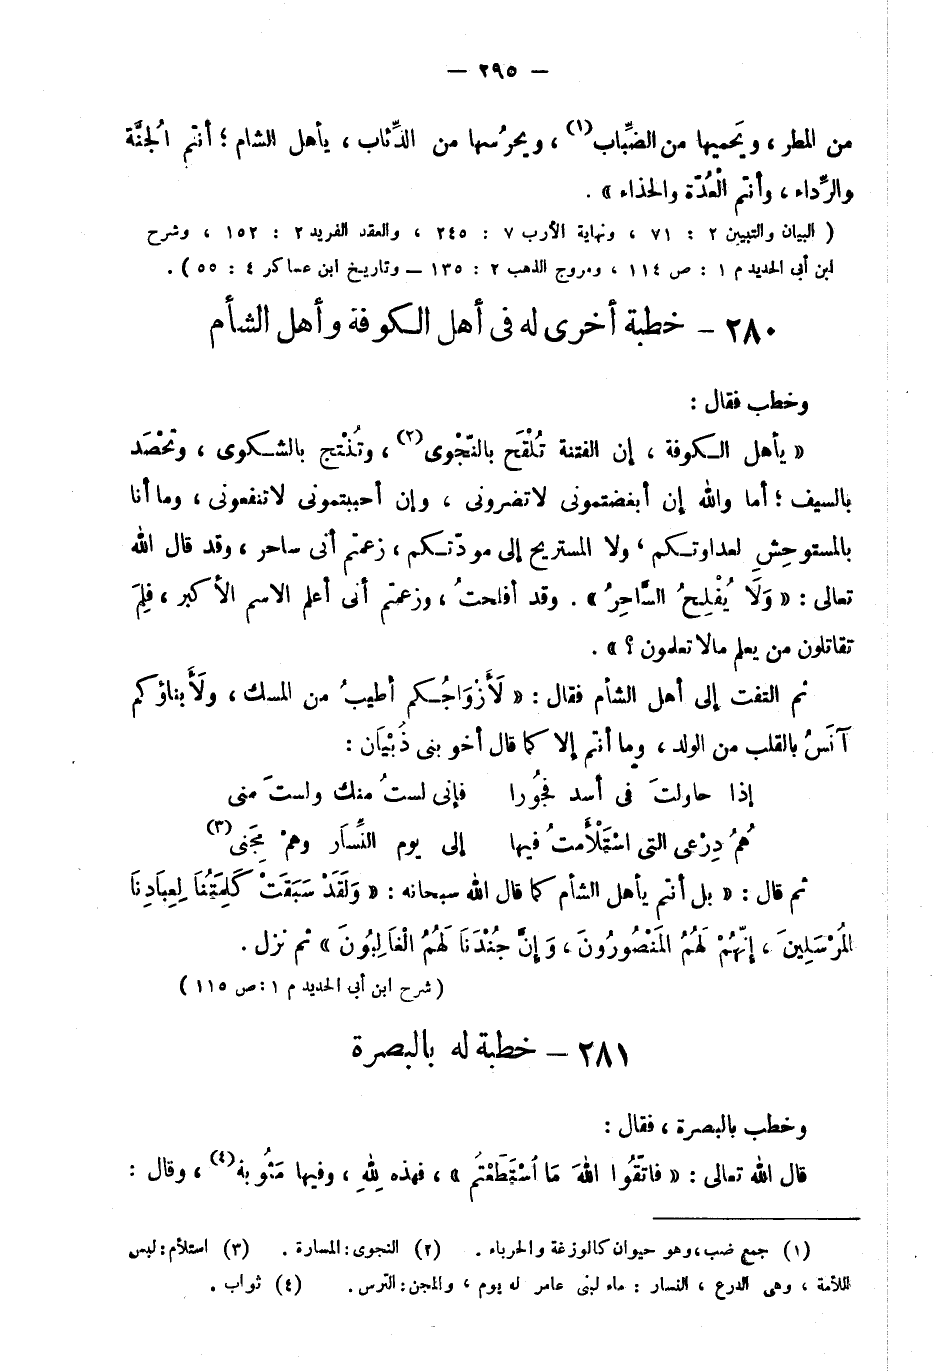 — ٢٩٥ —
من المطر ، ويَحميها من الضِّباب(١) ، ويحرُسها من الذِّئاب ، يأهل الشام ؛ أنتم الْجنَّة
والرِّداء ، وأنتم الْعُدّة والحذاء » .
( البيان والتبيين ٢ : ٧١ ، ونهاية الأرب ٧ : ٢٤٥ ، والعقد الفريد ٢ : ١٥٢ ، وشرح
ابن أبي الحديد م ١ : ص ١١٤ ، ومروج الذهب ٢ : ١٣٥ — وتاريخ ابن عساكر ٤ : ٥٥ ) .
٢٨٠ — خطبة أخرى له فى أهل الكوفة وأهل الشأم
وخطب فقال :
« يأهل الكوفة ، إن الفتنة تُلْقَح بالنّجْوى(٢) ، وتُنْتج بالشكوى ، وتُحْصَد
بالسيف ؛ أما والله إن أبغضتمونى لاتضرونى ، وإن أحببتمونى لاتنفعونى ، وما أنا
بالمستوحِشِ لعداوتكم ، ولا المستريح إلى مودّتكم ، زعمتم أنى ساحر ، وقد قال الله
تعالى : « وَلَا يُفْلِحُ السَّاحِرُ » . وقد أفلحتُ ، وزعمتم أنى أعلم الاسم الأكبر ، فلِمَ
تقاتلون من يعلم مالا تعلمون ؟ » .
ثم التفت إلى أهل الشأم فقال : « لَأَزْوَاجُكم أطيبُ من المسك ، ولَأَبناؤكم
آنَسُ بالقلب من الولد ، وما أنتم إلا كما قال أخو بنى ذُبْيَان :
إذا حاولتَ فى أسد فجُورا فإنى لستُ منك ولستَ منى
هُمُ دِرْعى التى اسْتَلْأَمتُ فيها إلى يوم النِّسَار وهمْ مِجَنى(٣)
ثم قال : « بل أنتم يأهل الشأم كما قال الله سبحانه : « وَلَقَدْ سَبَقَتْ كَلِمَتُنَا لِعِبَادِنَا
المُرْسَلِينَ ، إِنَّهُمْ لَهُمُ المَنْصُورُونَ ، وَإِنَّ جُنْدَنَا لَهُمُ الْغَالِبُونَ » ثم نزل .
( شرح ابن أبي الحديد م ١ : ص ١١٥ )
٢٨١ — خطبة له بالبصرة
وخطب بالبصرة ، فقال :
قال الله تعالى : « فاتَّقُوا اللهَ مَا اُسْتَطَعْتُم » ، فهذه لِلهِ ، وفيها مَثُوبة(٤) ، وقال :
(١) جمع ضب ، وهو حيوان كالوزغة والحرباء . (٢) النجوى : المسارة . (٣) استلأم : لبس
اللأمة ، وهى الدرع ، النسار : ماء لبنى عامر له يوم ، والمجن : الترس . (٤) ثواب .